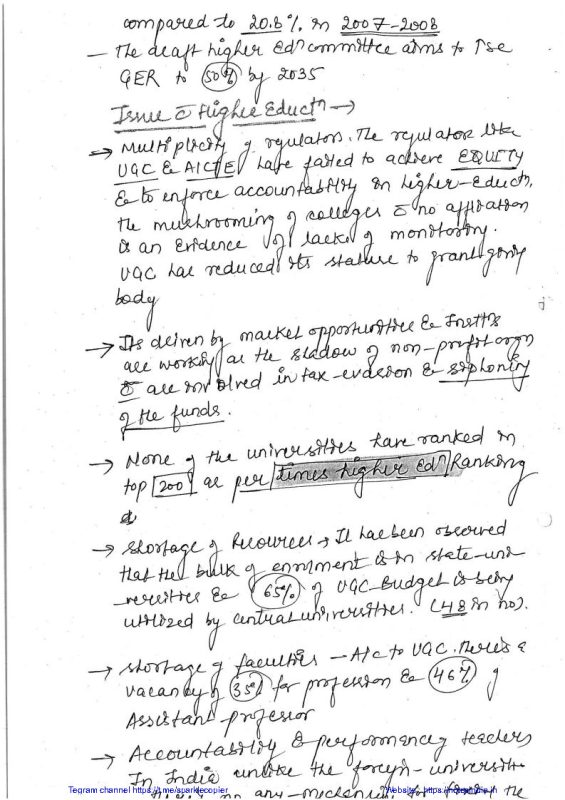 compared to 20.8% in 2007-2008
— The draft higher Edn committee aims to ↑se
GER to 50% by 2035
Issue c̄ Higher Eductn →
→ Multiplicity of regulators. The regulators like
UGC & AICTE have failed to achieve EQUITY
& to enforce accountability in higher-Eductn.
The mushrooming of colleges c̄ no affiliation
is an Evidence of lack of monitoring.
UGC has reduced its stature to grant giving
body
→ Its driven by market opportunities & Instts
are working as the shadow of non-profit orgn
& are involved in tax-evasion & siphoning
of the funds.
→ None of the universities have ranked in
top 200 as per times higher Edn Ranking
→ Shortage of Resources → It has been observed
that the bulk of enrolment is in state-uni
versities & 65% of UGC-Budget is being
utilized by central universities. (48 in no).
→ Shortage of faculties — A/c to UGC. There is a
vacancy of 35% for profession & 46% of
Assistant professor
→ Accountability & performance of teachers
In India unlike the foreign-universitie
there is no any-mechanism for the
Tegram channel https://t.me/sparklecopier
Website